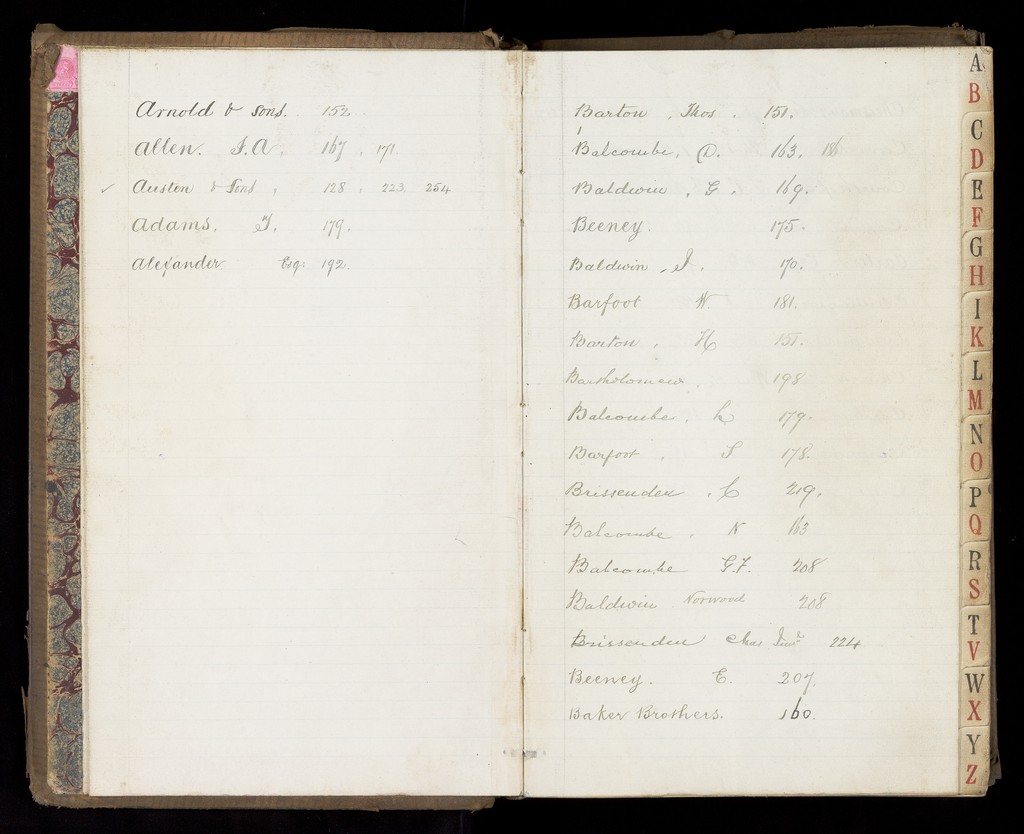 Arnold & Sons. 152.
Allen. J. A. 167. 171
✓ Auston & Sons, 128. 223. 254
Adams. J. 179.
Alexander Esq: 192.
Barton, Thos. 151.
Balcombe, 163.
Baldwin, G. 169.
Beeney. 175.
Baldwin, J. 170.
Barfoot W. 181.
Barton, H 151.
Bartholomew. 198
Balcombe, 179.
Barfoot, S 178.
Brissenden, C 219.
Balcombe, N 163
Balcombe G.F. 208
Baldwin Norwood 208
Brissenden Chas Junr 224
Beeney. E. 207.
Baker Brothers. 160.
A
B
C
D
E
F
G
H
I
K
L
M
N
O
P
Q
R
S
T
V
W
X
Y
Z